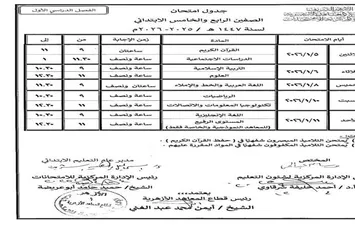 الفصل الدراسي الأول
جدول امتحان
الصفين الرابع والخامس الابتدائي
لسنة ١٤٤٧ هـ / ٢٠٢٥-٢٠٢٦م
أيام الامتحان المادة زمن الإجابة من إلى
٢٠٢٦/١/٥ القرآن الكريم ساعتان ٩ ١١
الدراسات الاجتماعية ساعة ونصف ١١.٣٠ ١
٢٠٢٦/١/٦ التربية الإسلامية ساعة ونصف ٩ ١٠.٣٠
العلوم ساعة ونصف ١١ ١٢.٣٠
٢٠٢٦/١/٨ اللغة العربية والخط والإملاء ساعتان ونصف ٩ ١١.٣٠
الرياضيات ساعة ونصف ٩ ١٠.٣٠
تكنولوجيا المعلومات والاتصالات ساعة ونصف ١١ ١٢.٣٠
اللغة الإنجليزية ساعة ونصف ٩ ١٠.٣٠
المستوى الرفيع ساعة ونصف ١١ ١٢.٣٠
(للمعاهد النموذجية والخاصة فقط)
يمتحن التلاميذ المبصرون شفهيًا في (حفظ القرآن الكريم)
يمتحن التلاميذ المكفوفون شفهيًا في المواد المقررة عليهم
المختص
مدير عام التعليم الابتدائي
الإدارة المركزية لشئون التعليم
رئيس الإدارة المركزية للامتحانات
أحمد خليفة شرقاوي
الشيخ/ حميد حامد أبو عريضة
يعتمد،،،
رئيس قطاع المعاهد الأزهرية
الشيخ/ أيمن محمد عبد الغني